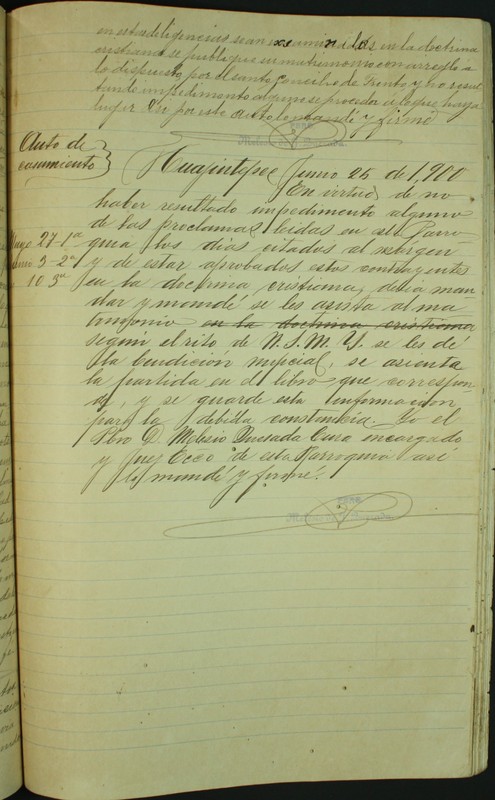 en estas diligencias sean examinados en la doctrina
cristiana se publiquen su matrimonio con arreglo a
lo dispuesto por el santo Concilio de Trento y no resul
tando impedimento alguno se proceda a lo que haya
lugar. Así por este auto lo mandé y firmé
Auto de
casamiento
Huajintepec Junio 25 de 1,900
En virtud de no
haber resultado impedimento alguno
de las proclamas leidas en esta Parro
Mayo 27-1a
quia los dias citados al márgen
Junio 3-2a
y de estar aprobados estos contrayentes
10 3a
en la doctrina cristiana, debia man
dar y mandé se les asista al ma
trimonio en la doctrina cristiana
según el rito de N. S. M. Y. se les dé
la bendición nupcial, se asienta
la partida en el libro que correspon
da, y se guarde esta informacion
para la debida constancia. Yo el
Pbro D. Melesio Quesada Cura encargado
y Juez Ecco de esta Parroquia así
lo mandé y firmé.